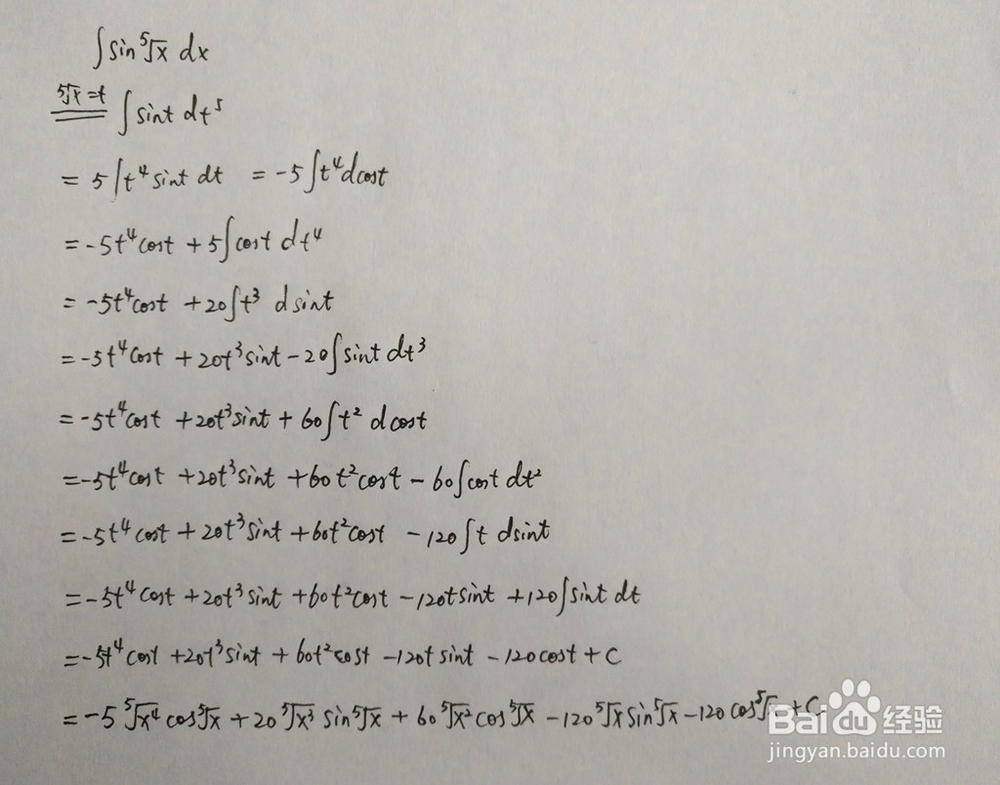 ∫sin⁵√x dx
⁵√x=t ∫sint dt⁵
= 5∫t⁴sint dt = -5∫t⁴dcost
= -5t⁴cost + 5∫cost dt⁴
= -5t⁴cost + 20∫t³ dsint
= -5t⁴cost + 20t³sint - 20∫sint dt³
= -5t⁴cost + 20t³sint + 60∫t² dcost
= -5t⁴cost + 20t³sint + 60t²cost - 60∫cost dt²
= -5t⁴cost + 20t³sint + 60t²cost - 120∫t dsint
= -5t⁴cost + 20t³sint + 60t²cost - 120tsint + 120∫sint dt
= -5t⁴cost + 20t³sint + 60t²cost - 120tsint - 120cost + C
= -5⁵√x⁴cos⁵√x + 20⁵√x³sin⁵√x + 60⁵√x²cos⁵√x - 120⁵√xsin⁵√x - 120cos⁵√ + C
Baidu经验
jingyan.baidu.com